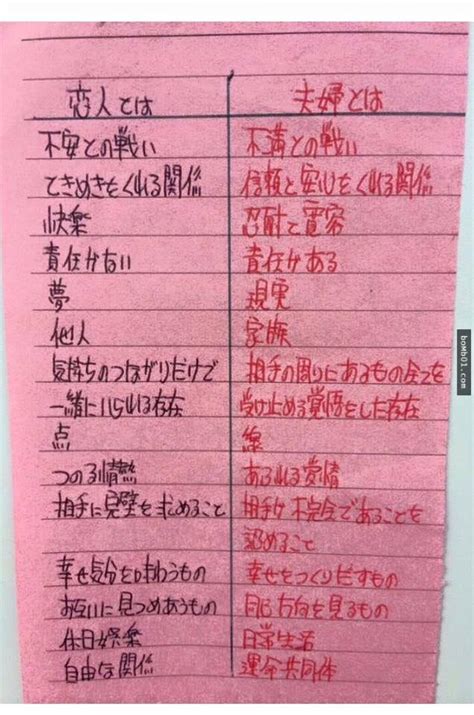 恋人とは 夫婦とは
不安との戦い 不満との戦い
てきめきをくれる関係 信頼と安心をくれる関係
快楽 忍耐と寛容
責任がない 責任がある
夢 現実
他人 家族
気持ちのつながりだけで 相手の周りにあるもの全てを
一緒にいられる存在 受け止める覚悟をした存在
点 線
つのる情熱 あふれる愛情
相手に完璧を求めること 相手が不完全であることを
認めること
幸せ気分を味わうもの 幸せをつくりだすもの
お互いに見つめあうもの 同じ方向を見るもの
休日娯楽 日常生活
自由な関係 運命共同体
bomb01.com